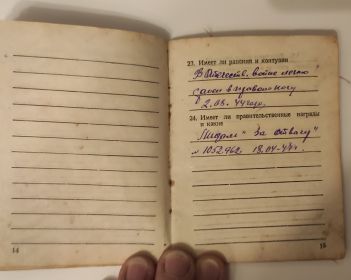 23. Имеет ли ранения и контузии
В Отечеств. войне легко
ранен в правую ногу
2.08.44 года.
24. Имеет ли правительственные награды
и какие
Медаль "За отвагу"
№ 1052962. 18.04.44г.
14
15